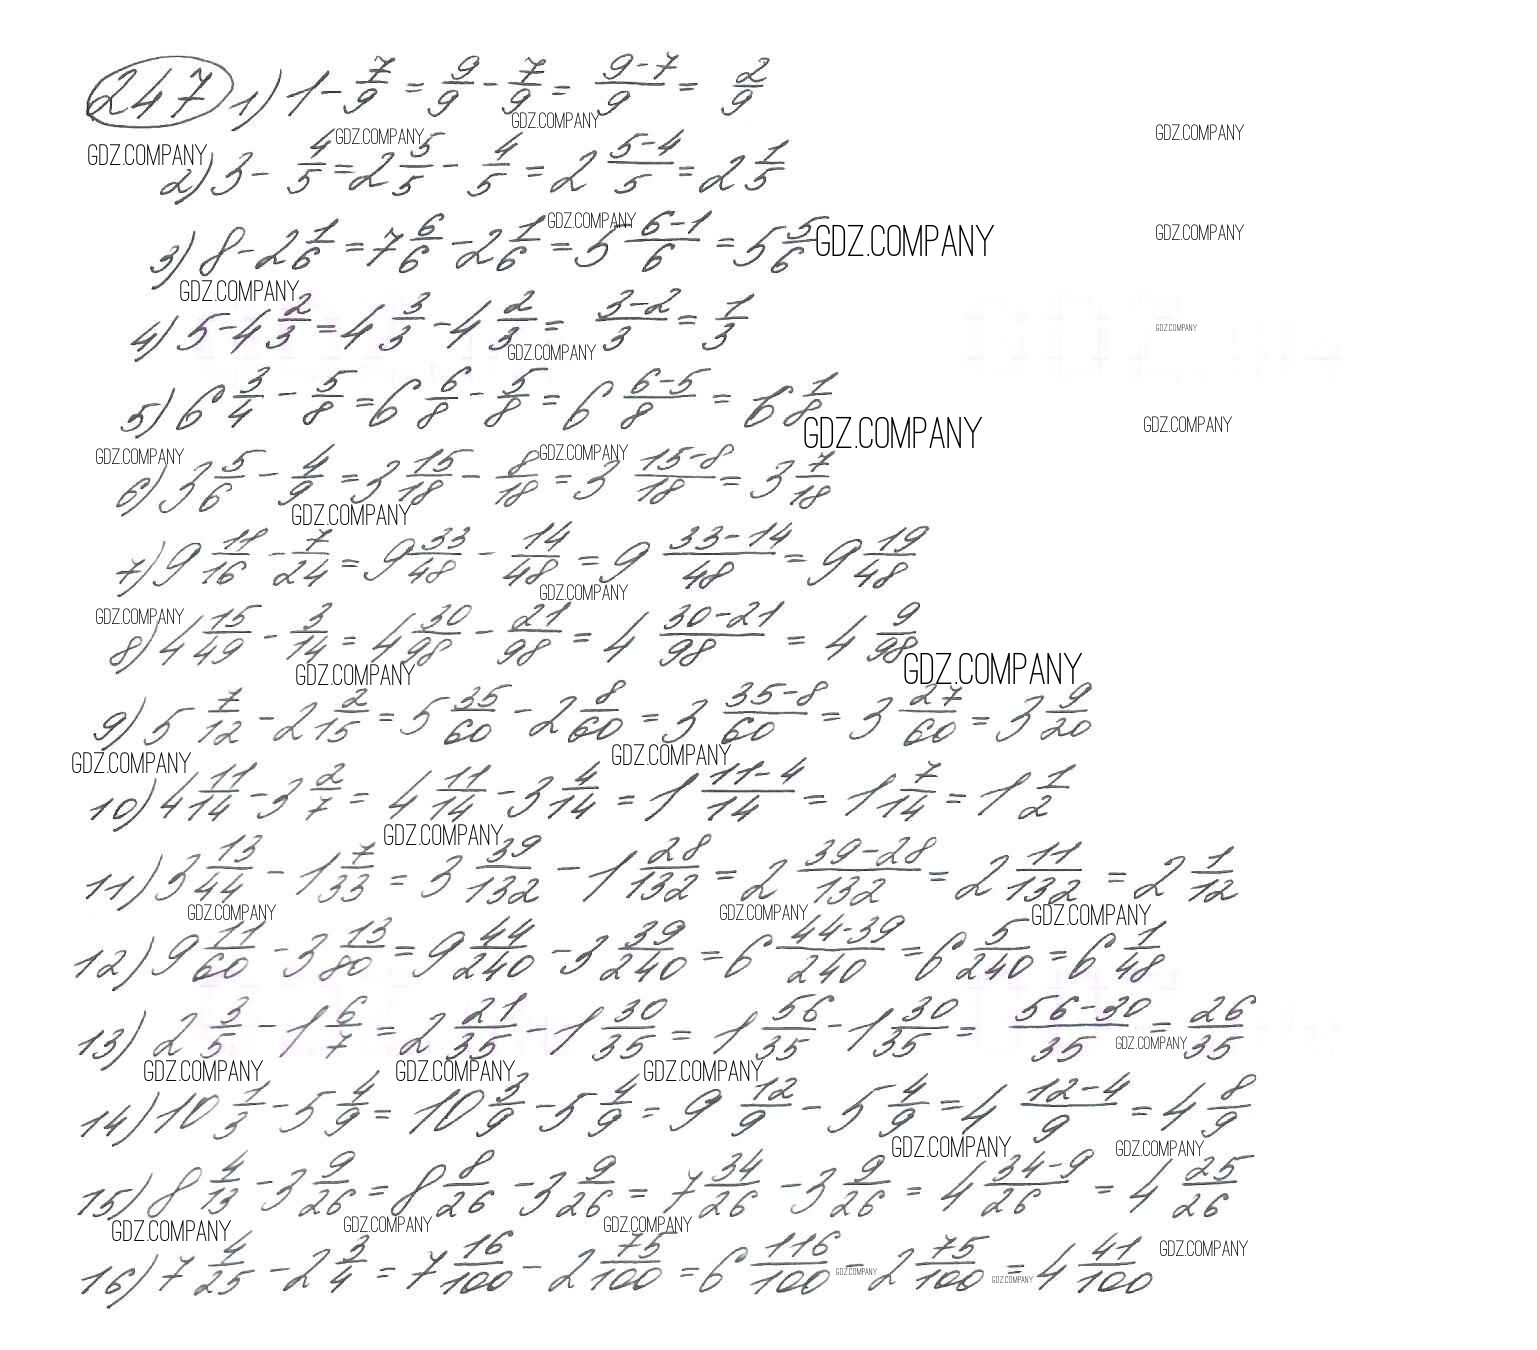 247 1) 1 - 7/9 = 9/9 - 7/9 = (9-7)/9 = 2/9
GDZ.COMPANY
GDZ.COMPANY
GDZ.COMPANY
GDZ.COMPANY
2) 3 - 4/5 = 2 5/5 - 4/5 = 2 (5-4)/5 = 2 1/5
GDZ.COMPANY
GDZ.COMPANY
3) 8 - 2 1/6 = 7 6/6 - 2 1/6 = 5 (6-1)/6 = 5 5/6 GDZ.COMPANY
GDZ.COMPANY
4) 5 - 4 2/3 = 4 3/3 - 4 2/3 = (3-2)/3 = 1/3
GDZ.COMPANY
GDZ.COMPANY
5) 6 3/4 - 5/8 = 6 6/8 - 5/8 = 6 (6-5)/8 = 6 1/8
GDZ.COMPANY
GDZ.COMPANY
GDZ.COMPANY
GDZ.COMPANY
6) 3 5/6 - 4/9 = 3 15/18 - 8/18 = 3 (15-8)/18 = 3 7/18
GDZ.COMPANY
7) 9 11/16 - 7/24 = 9 33/48 - 14/48 = 9 (33-14)/48 = 9 19/48
GDZ.COMPANY
GDZ.COMPANY
8) 4 15/49 - 3/14 = 4 30/98 - 21/98 = 4 (30-21)/98 = 4 9/98
GDZ.COMPANY
GDZ.COMPANY
9) 5 7/12 - 2 2/15 = 5 35/60 - 2 8/60 = 3 (35-8)/60 = 3 27/60 = 3 9/20
GDZ.COMPANY
GDZ.COMPANY
10) 4 11/14 - 3 2/7 = 4 11/14 - 3 4/14 = 1 (11-4)/14 = 1 7/14 = 1 1/2
GDZ.COMPANY
11) 3 13/44 - 1 7/33 = 3 39/132 - 1 28/132 = 2 (39-28)/132 = 2 11/132 = 2 1/12
GDZ.COMPANY
GDZ.COMPANY
GDZ.COMPANY
12) 9 11/60 - 3 13/80 = 9 44/240 - 3 39/240 = 6 (44-39)/240 = 6 5/240 = 6 1/48
13) 2 3/5 - 1 6/7 = 2 21/35 - 1 30/35 = 1 56/35 - 1 30/35 = (56-30)/35 = 26/35
GDZ.COMPANY
GDZ.COMPANY
GDZ.COMPANY
GDZ.COMPANY
14) 10 1/3 - 5 4/9 = 10 3/9 - 5 4/9 = 9 12/9 - 5 4/9 = 4 (12-4)/9 = 4 8/9
GDZ.COMPANY
GDZ.COMPANY
15) 8 4/13 - 3 9/26 = 8 8/26 - 3 9/26 = 7 34/26 - 3 9/26 = 4 (34-9)/26 = 4 25/26
GDZ.COMPANY
GDZ.COMPANY
GDZ.COMPANY
GDZ.COMPANY
16) 7 4/25 - 2 3/4 = 7 16/100 - 2 75/100 = 6 116/100 - 2 75/100 = 4 41/100
GDZ.COMPANY
GDZ.COMPANY